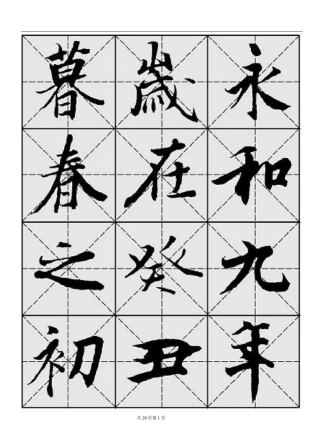 永和九年
歲在癸丑
暮春之初
共20页第1页